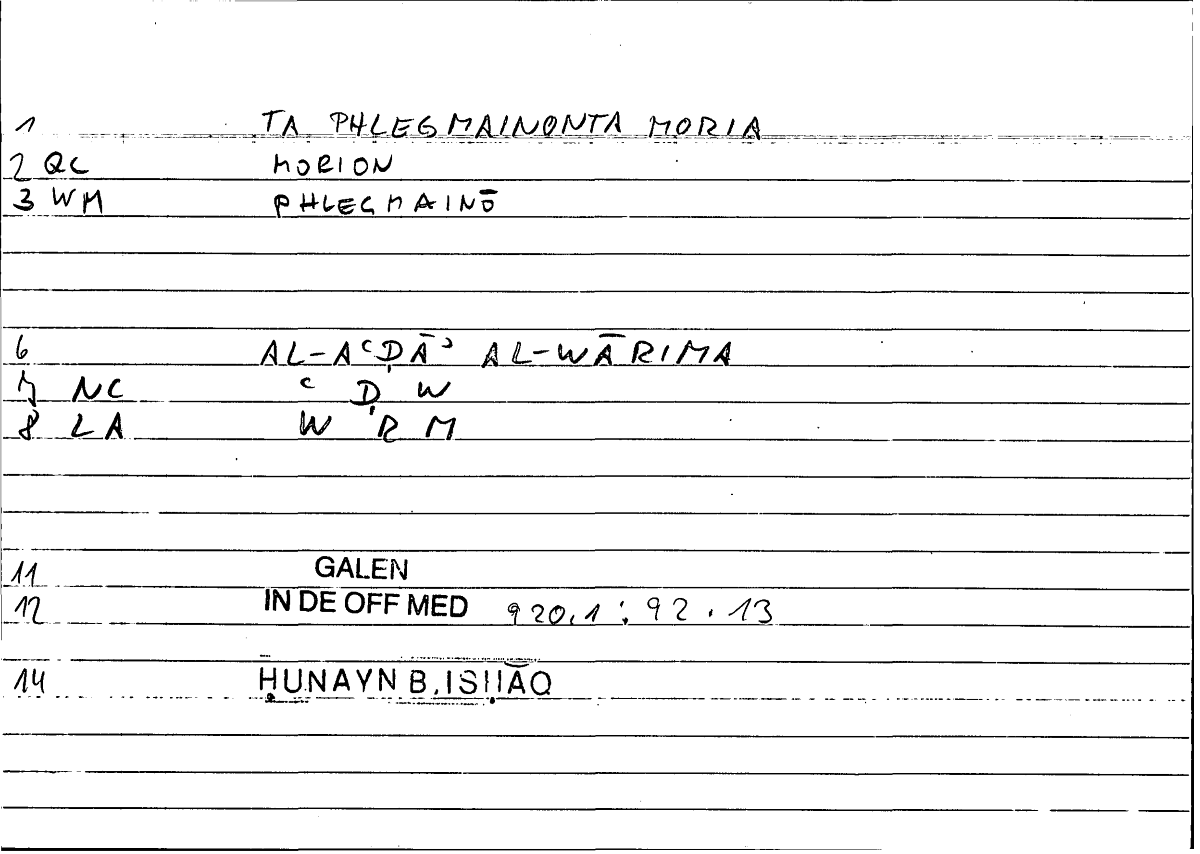 1 TA PHLEGMAINONTA MORIA
2 QC MORION
3 WM PHLEGMAINŌ
6 AL-AʿḌĀʾ AL-WĀRIMA
7 NC ʿ Ḍ W
8 LA W R M
11 GALEN
12 IN DE OFF MED 920,1 ; 92 . 13
14 ḤUNAYN B. ISḤĀQ